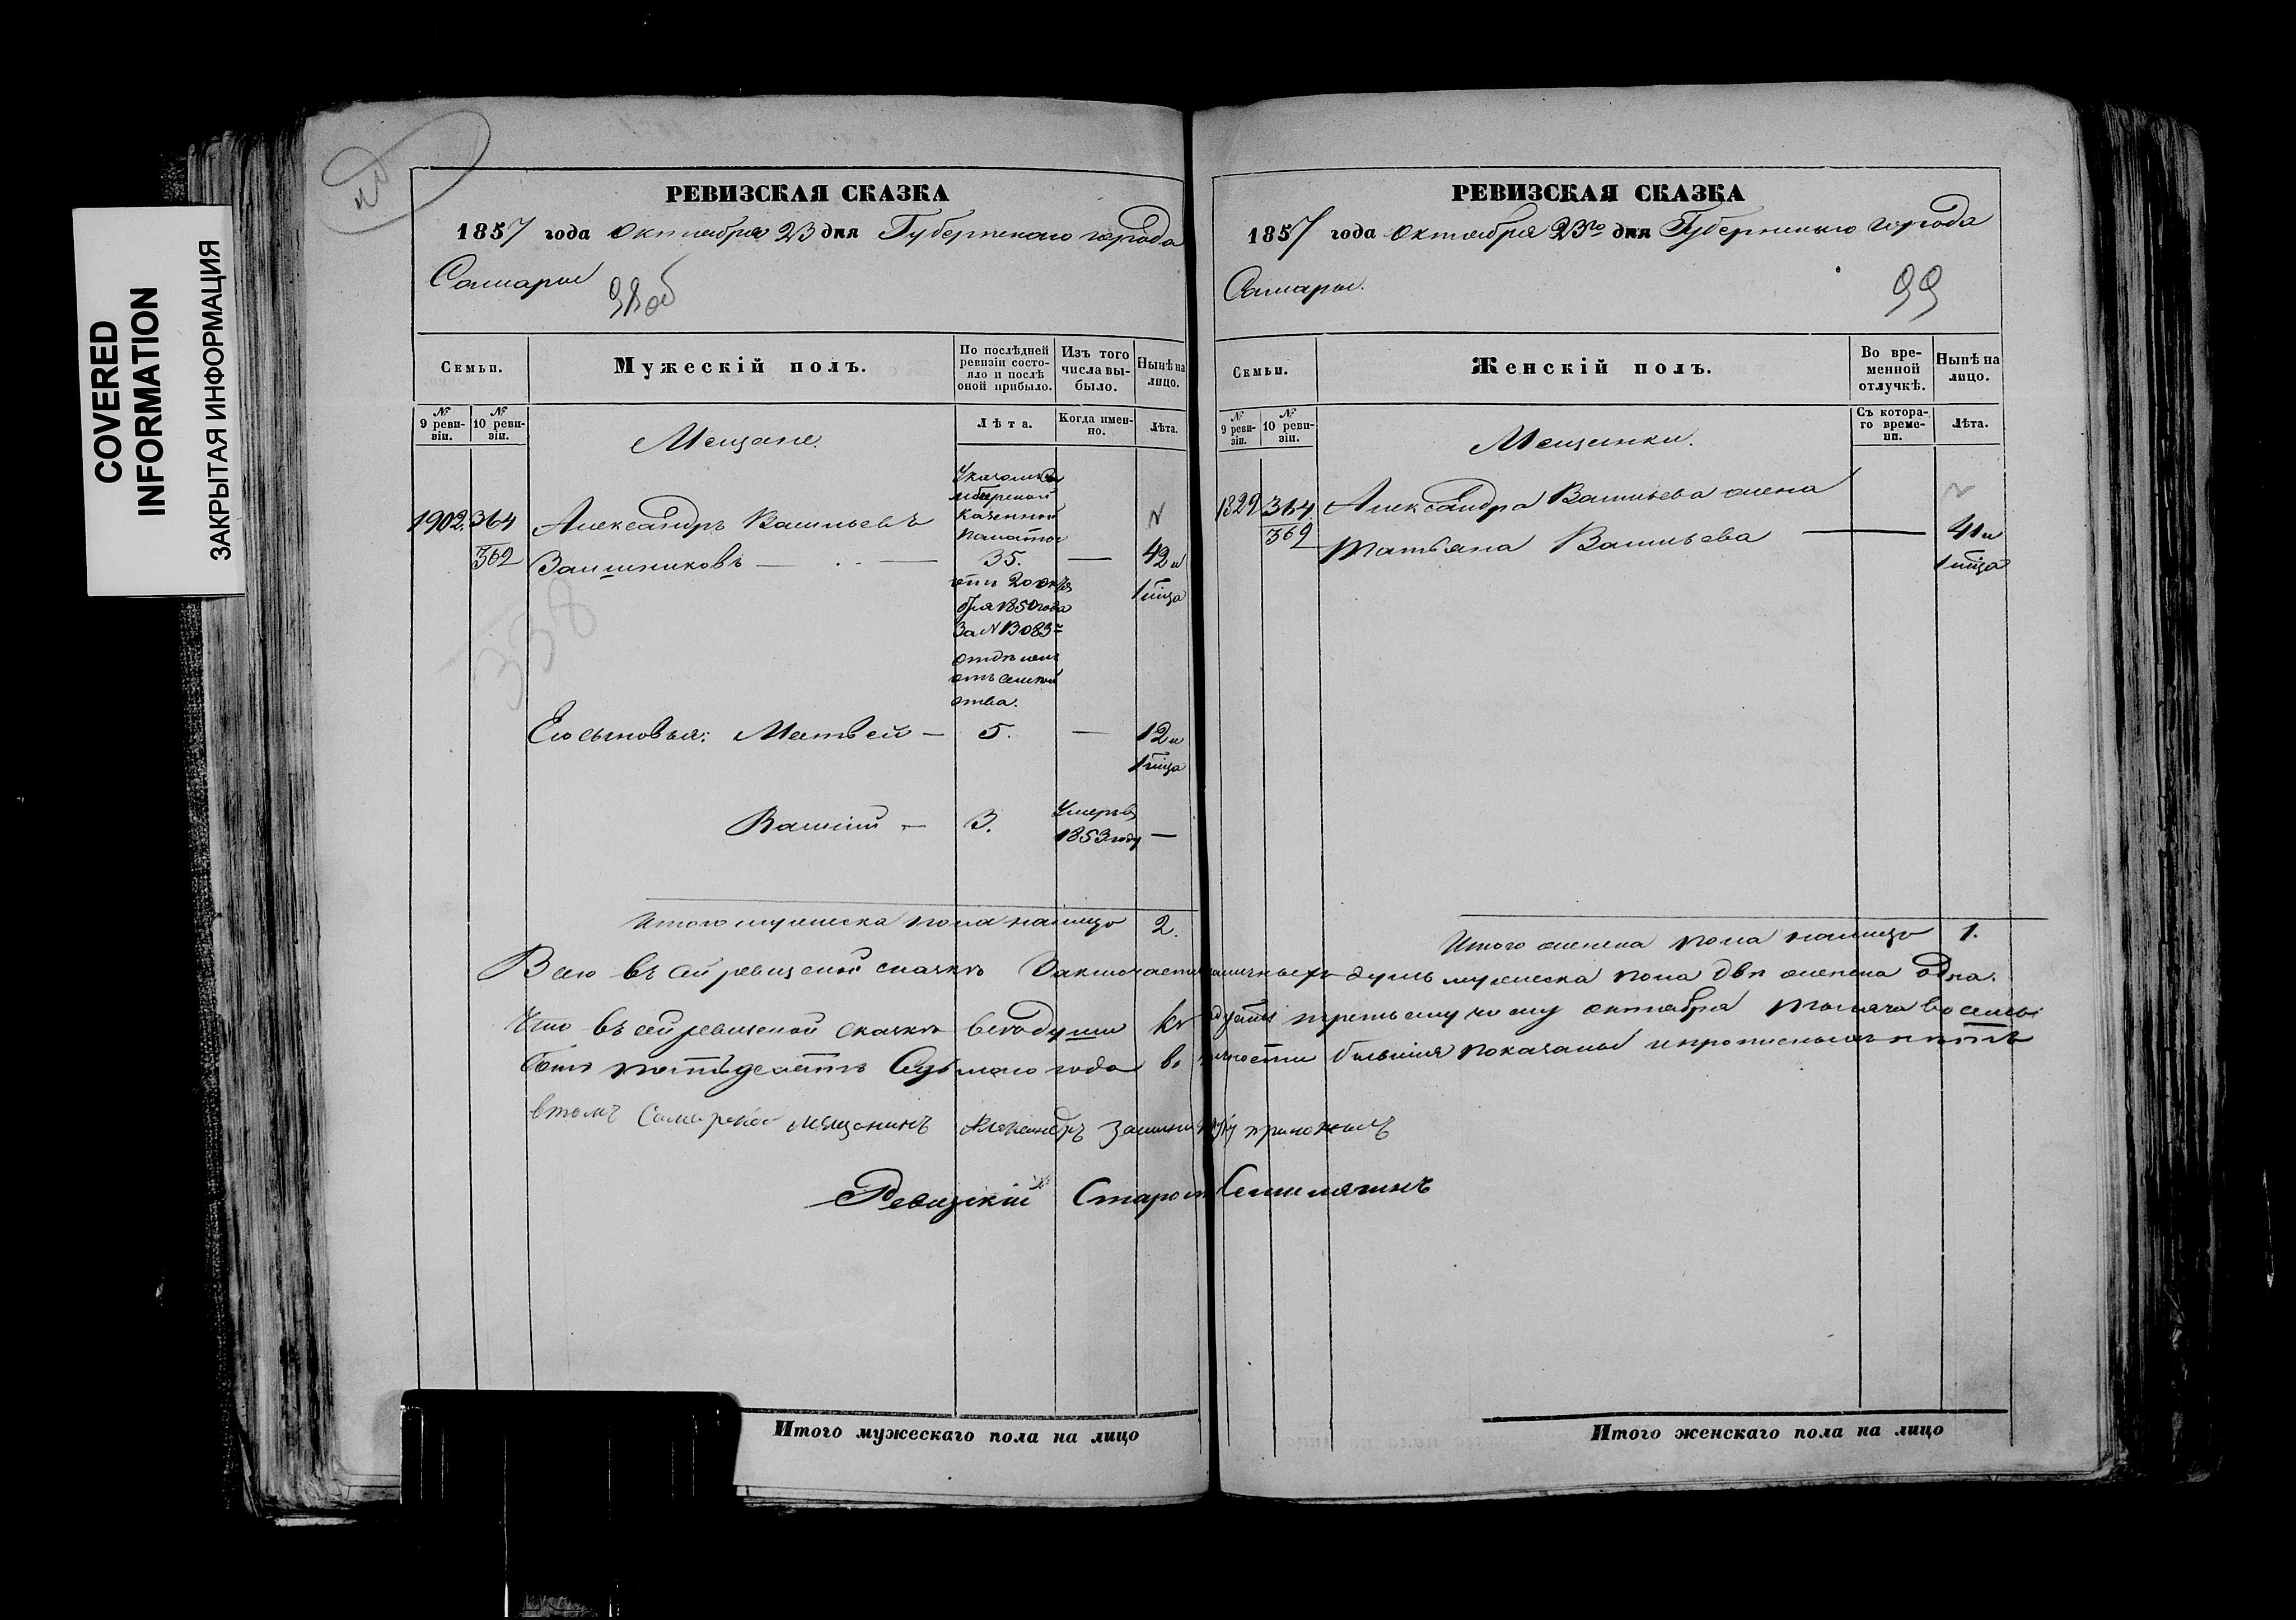 COVERED
INFORMATION
ЗАКРЫТАЯ ИНФОРМАЦИЯ
РЕВИЗСКАЯ СКАЗКА
1857 года октября 23 дня Губернскаго города
Самары
98об
Семьи.
Мужескій полъ.
По послѣдней
ревизіи состо-
яло и послѣ
оной прибыло.
Изъ того
числа вы-
было.
Нынѣ на
лицо.
№
9 реви-
зіи.
№
10 реви-
зіи.
Мещане.
Лѣта.
Когда имен-
но.
Лѣта.
Казенной
Палаты
1902 364 Александръ Васильевъ
362 Заишниковъ — 35. — 42 и
отъ 20 октя
бря 1850 года
За № 13083
отдѣленъ
отъ семей
ства.
1 мца
338
Его сыновья: Матвей — 5. — 12 и
1 мца
Василій — 3. Умеръ въ
1853 году —
Итого мужеска пола налицо 2.
РЕВИЗСКАЯ СКАЗКА
1857 года Октября 23го дня Губернскаго города
Самары.
99
Семьи.
Женскій полъ.
Во вре-
менной
отлучкѣ.
Нынѣ на
лицо.
№
9 реви-
зіи.
№
10 реви-
зіи.
Мещанки.
Съ котора-
го време-
ни.
Лѣта.
364 Александра Васильева жена
362 Татьяна Васильева — 41 и
1 мца
Итого женска пола налицо 1.
Всего въ сей ревизской сказкѣ Заключается наличныхъ душъ мужеска пола двѣ женска одна.
Что въ сей ревизской сказкѣ все души къ двадцать третьему числу октября тысяча восемь
сотъ пятьдесятъ Седьмаго года въ наличности бывшия показаны и прописныхъ нѣтъ
втомъ Самарской мещанинъ Александръ руку приложилъ
Ревизскій Староста
Итого мужескаго пола на лицо
Итого женскаго пола на лицо